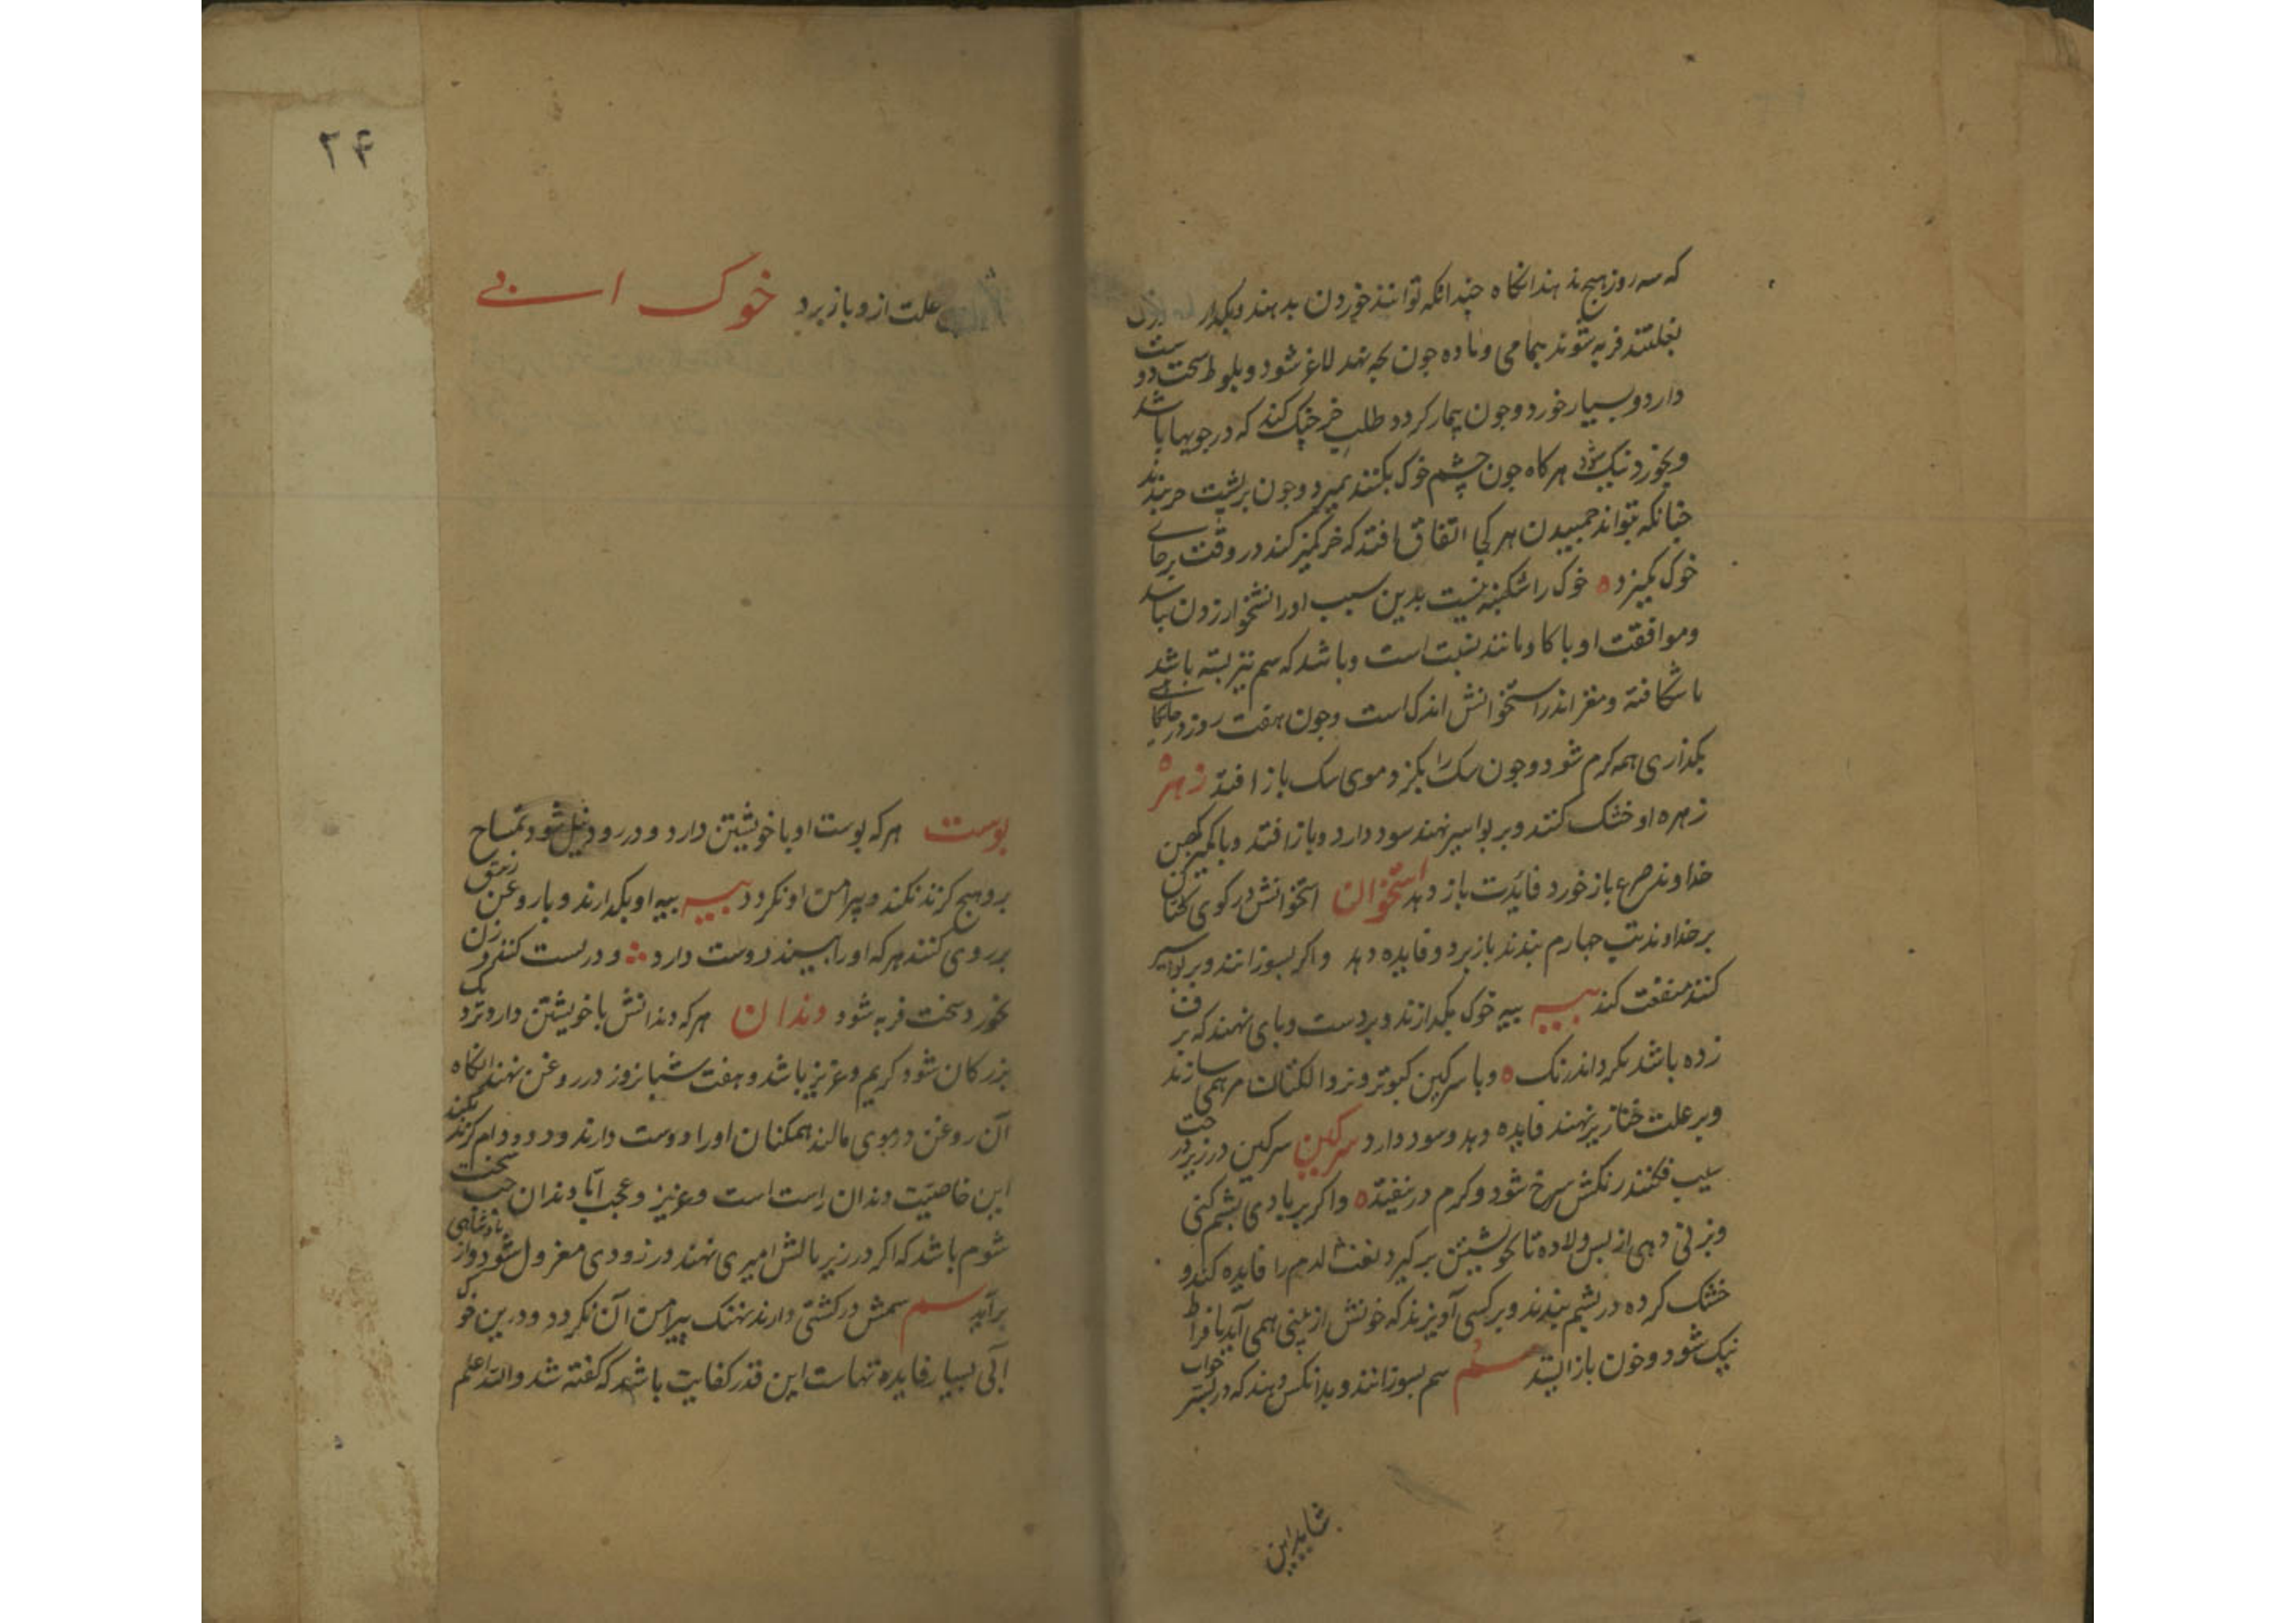 که سه روز هیچ ندهند انکاه چندانکه توانند خوردن بدهند و بکذار
بغلتند فربه شوند بتمامی وماده چون بچه نهد لاغر شود و بلوط سخت دوست
دارد و بسیار خورد و چون بیمار کردد طلب خرچنک کند که در جویها باشد
وبخورد نیک شود هرکاه چون چشم خوک بکنند بمیرد وچون بر پشت خر بندند
چنانکه نتواند جمبیدن هر کی اتفاق افتد که خر کمیز کند در وقت بر جای
خوک بمیرد خوک را شکنبه نیست بدین سبب او را نشخوار زدن نباشد
وموافقت او با کاو مانند نسبت است وباشد که سم نیز بسته باشد
یا شکافته ومغز اندر استخوانش اندک است وچون هفت روز در جایکاهی
بکذاری همه کرم شود و چون سک را بکزد موی سک باز افتد زهره
زهره او خشک کنند و بر بواسیر نهند سود دارد و باز افتد وبا کمیز کهن
خداوند صرع باز خورد فایدت باز دهد استخوان استخوانش در رکوی کتان کن
بر خداوند تب چهارم بندند باز برد و فایده دهد واکر بسوزانند وبر بواسیر
کنند منفعت کند پیه پیه خوک بکدازند و بر دست وپای نهند که برف
زده باشد نکرداند رنک وبا سرکین کبوتر وبزر الکتان مرهمی سازند
وبر علت خنازیر نهند فایده دهد و سود دارد سرکین سرکین در زیر درخت
سیب فکنند رنکش سرخ شود و کرم در نیفتد واکر بر پاره‌ی پشم کنی
وبزنی دهی از پس ولاده تا بخویشتن بر کیرد نفث الدم را فایده کند و
خشک کرده در پشم بندند وبر کسی آویزند که خونش از بینی همی آید بافراط
نیک شود و خون باز ایستد سم سم بسوزانند و بدانکس دهند که در بستر خواب
شاید این
۲۴
علت ازو باز برد خوک ابی
پوست هر که پوست او با خویشتن دارد و در رود نیل شود تمساح
برو هیچ کزند نکند و پیرامن او نکردد پیه پیه او بکدازند و با روغن زنبق
بر روی کنند هر که او را ببیند دوست دارد و درست کنند زن
بخورد سخت فربه شود دندان هر که دندانش با خویشتن دارد نزدیک
بزرکان شود کریم و عزیز باشد و هفت شبانروز در روغن نهند انکاه
آن روغن در موی مالند همکنان او را دوست دارند و دد و دام کزند نکند
این خاصیت دندان راست است و عزیز وعجب اما دندان چپ سخت
شوم باشد که اکر در زیر بالش امیری نهند در زودی معزول شود و از پادشاهی
برآید سم سمش در کشتی دارند نهنک پیرامن آن نکردد و درین خوک
آبی بسیار فایده‌تهاست این قدر کفایت باشد که کفته شد والله اعلم